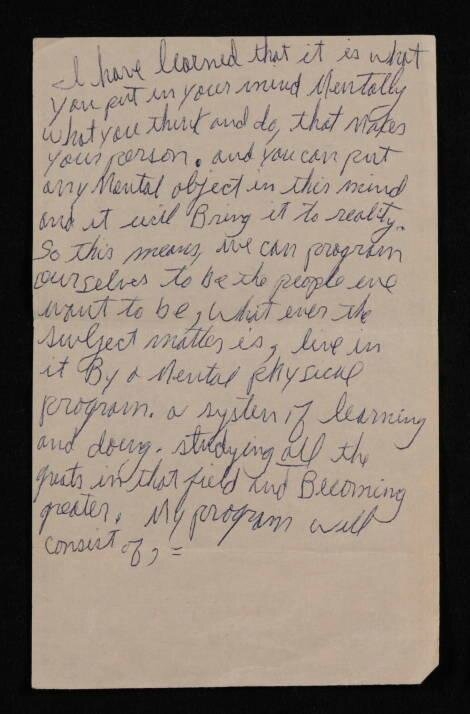 I have learned that it is what
you put in your mind Mentally
what you think and do, that Makes
your person. and you can put
any Mental object in this mind
and it will Bring it to reality.
So this means, we can program
ourselves to be the people we
want to be, what ever the
subject matter is, live in
it By a Mental physical
program. a system of learning
and doing. studying all the
greats in that field and Becoming
greater. My program will
consist of, =